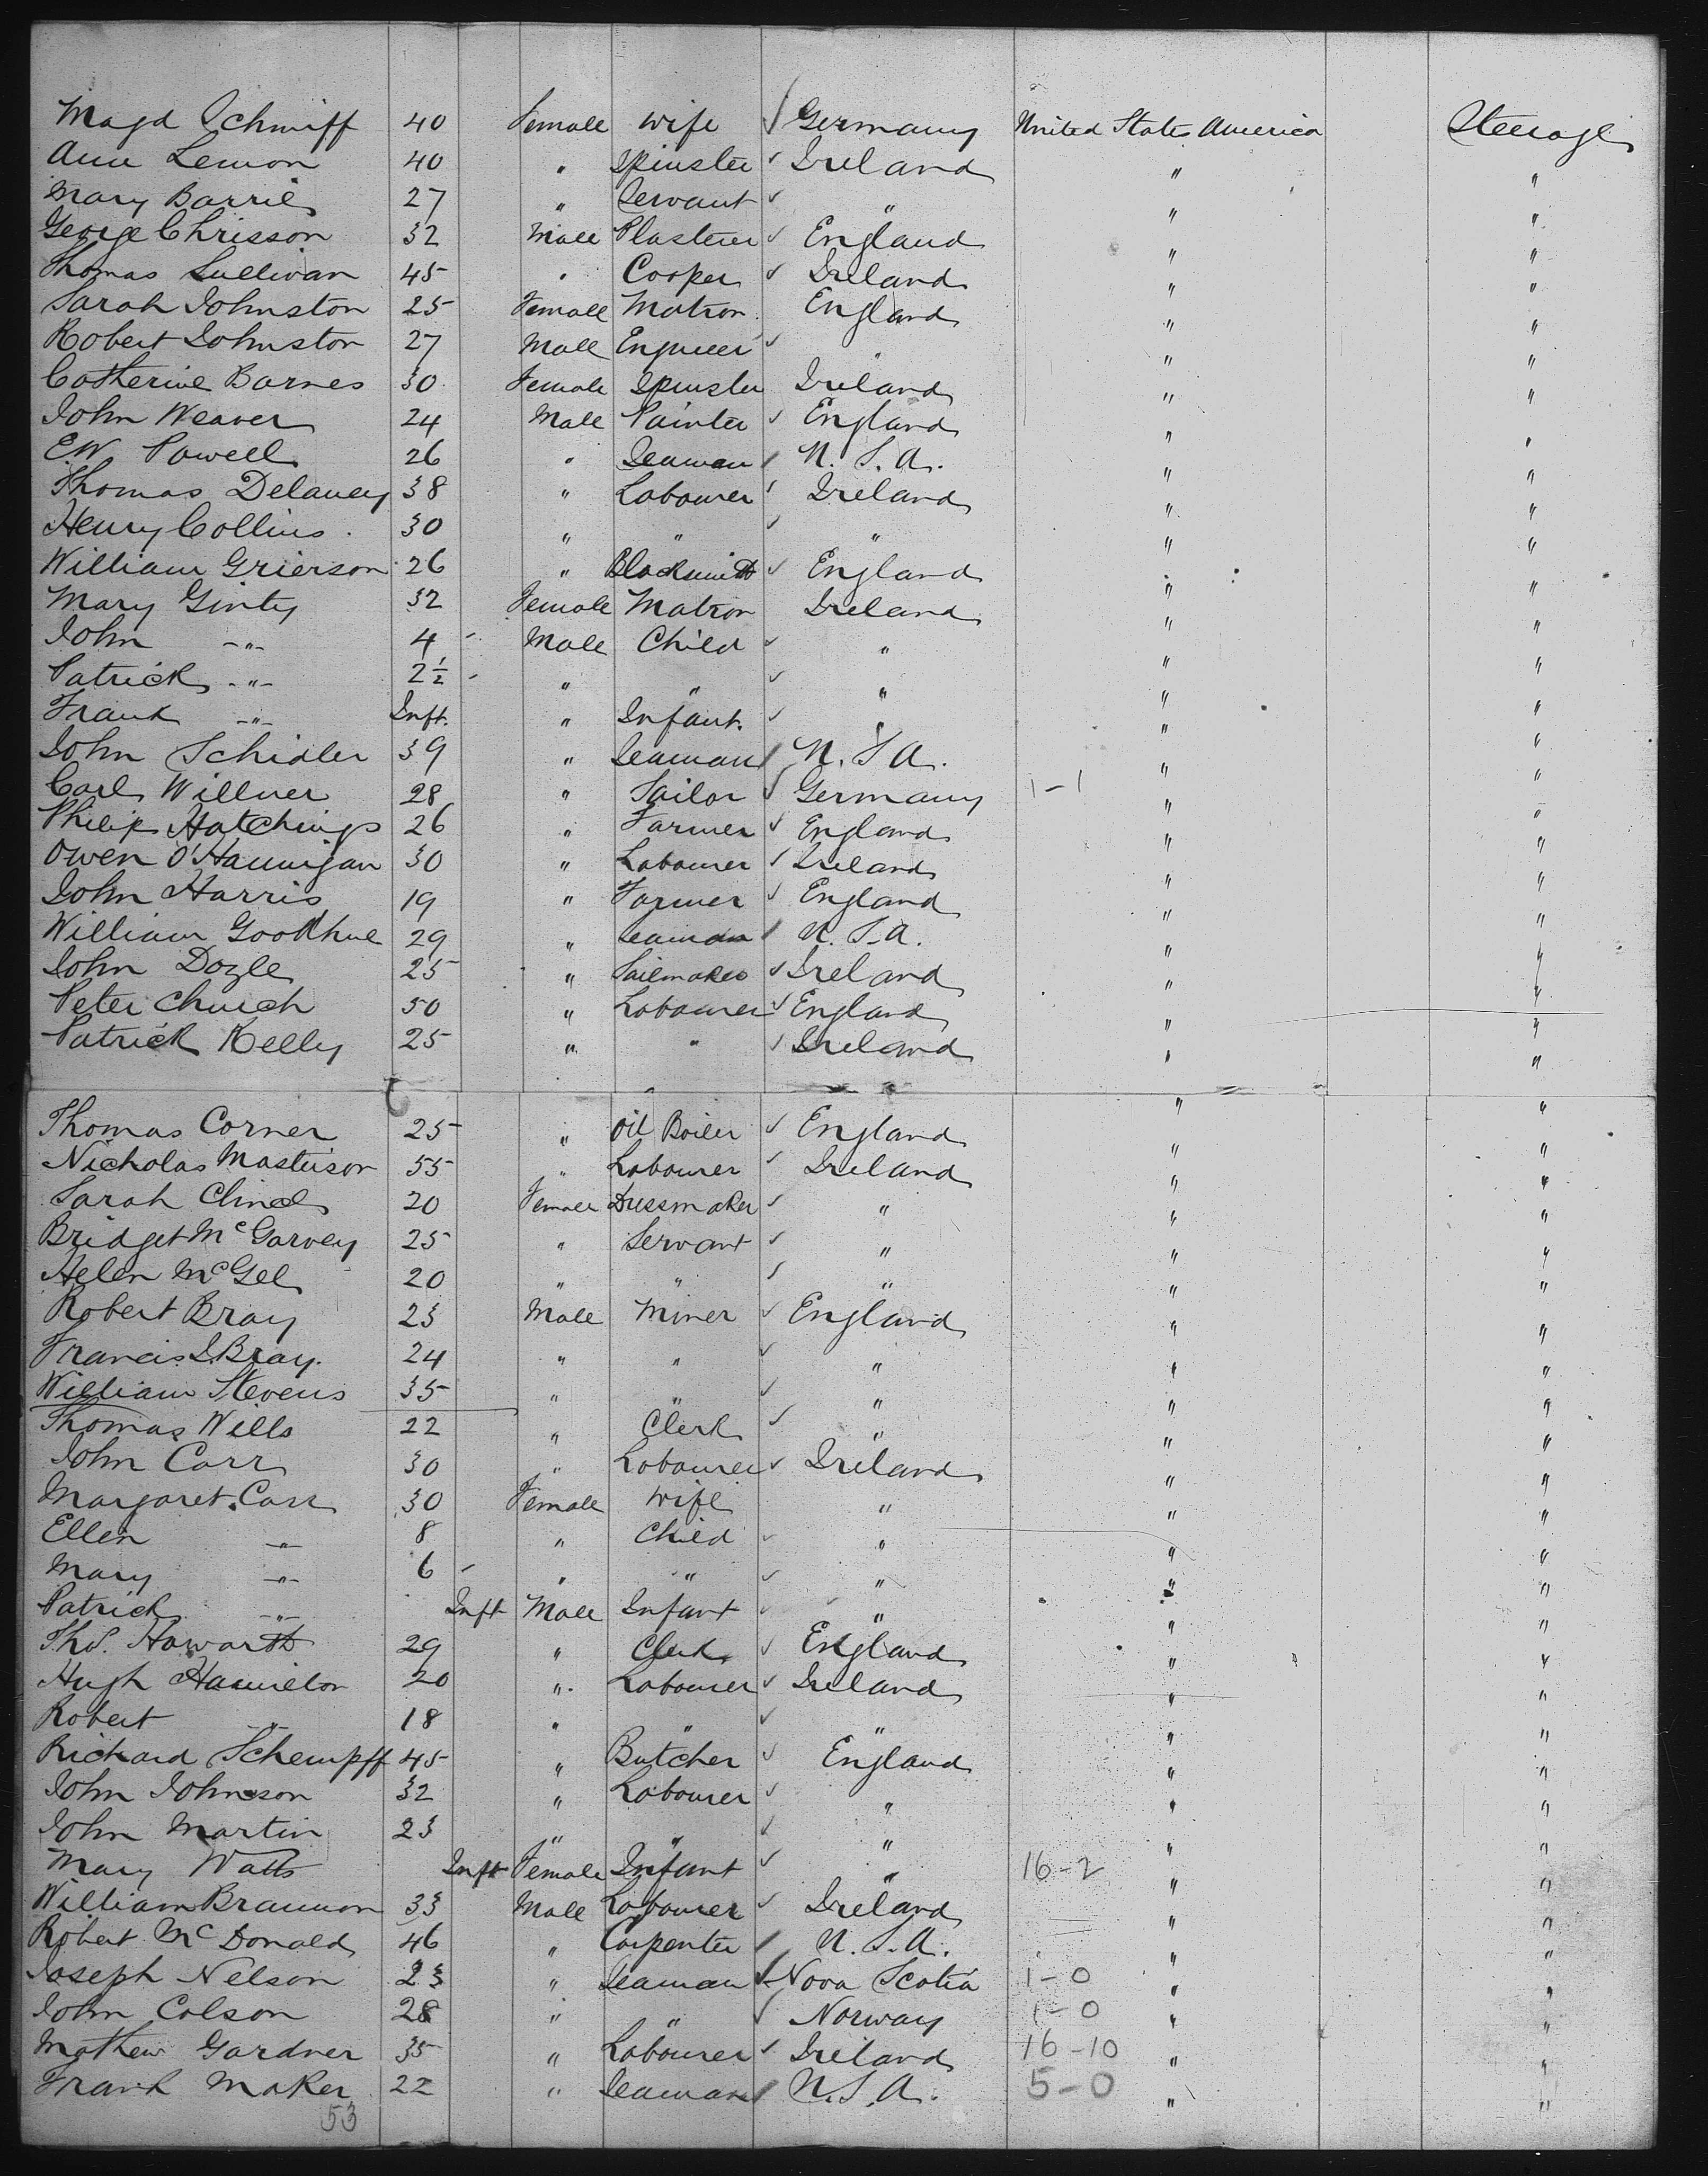 Magd Schmiff 40 Female Wife √ Germany United States America Steerage
Ann Lemon 40 " Spinster √ Ireland " "
Mary Barrie 27 " Servant √ " " "
George Chrisson 32 Male Plasterer √ England " "
Thomas Sullivan 45 " Cooper √ Ireland " "
Sarah Johnston 25 Female Matron England " "
Robert Johnston 27 Male Engineer √ " " "
Catherine Barnes 30 Female Spinster Ireland " "
John Weaver 24 Male Painter √ England " "
E.W. Powell 26 " Seaman / U.S.A. " "
Thomas Delaney 38 " Labourer √ Ireland " "
Henry Collins 30 " " √ " " "
William Grierson 26 " Blacksmith √ England " "
Mary Ginty 32 Female Matron Ireland " "
John -"- 4 Male Child √ " " "
Patrick -"- 2½ " " √ " " "
Frank -"- Inft. " Infant. √ " " "
John Schidler 39 " Seaman / U.S.A. " "
Carl Willner 28 " Sailor √ Germany 1-1 " "
Philip Hatchings 26 " Farmer √ England " "
Owen O'Hannigan 30 " Labourer √ Ireland " "
John Harris 19 " Farmer √ England " "
William Goodhue 29 " Seaman / U.S.A. " "
John Dozle 25 " Sailmaker √ Ireland " "
Peter Church 50 " Labourer √ England " "
Patrick Kelly 25 " " √ Ireland " "
Thomas Corner 25 " Oil Boiler √ England " "
Nicholas Masterson 55 " Labourer √ Ireland " "
Sarah 20 Female Dressmaker √ " " "
Bridget McGarvey 25 " Servant √ " " "
Helen McGee 20 " " √ " " "
Robert Bray 23 Male Miner √ England " "
Francis J. Bray. 24 " " √ " " "
William Stevens 35 " " √ " " "
Thomas Wills 22 " Clerk √ " " "
John Carr 30 " Labourer √ Ireland " "
Margaret Carr 30 Female Wife " " "
Ellen -"- 8 " Child √ " " "
Mary -"- 6 " " √ " " "
Patrick -"- Inft Male Infant √ " " "
Thos. Howarth 29 " Clerk √ England " "
Hugh Hamilton 20 " Labourer √ Ireland " "
Robert -"- 18 " " √ " " "
Richard Schempff 45 " Butcher √ England " "
John Johnson 32 " Labourer √ " " "
John Martin 23 " " √ " " "
Mary Watts Inft Female Infant √ " 16-2 " "
William Brannon 33 Male Labourer √ Ireland " "
Robert McDonald 46 " Carpenter / U.S.A. " "
Joseph Nelson 23 " Seaman √ Nova Scotia 1-0 " "
John Colson 28 " " √ Norway 1-0 " "
Mathew Gardner 35 " Labourer √ Ireland 16-10 " "
Frank Maker 22 " Seaman / U.S.A. 5-0 " "
53